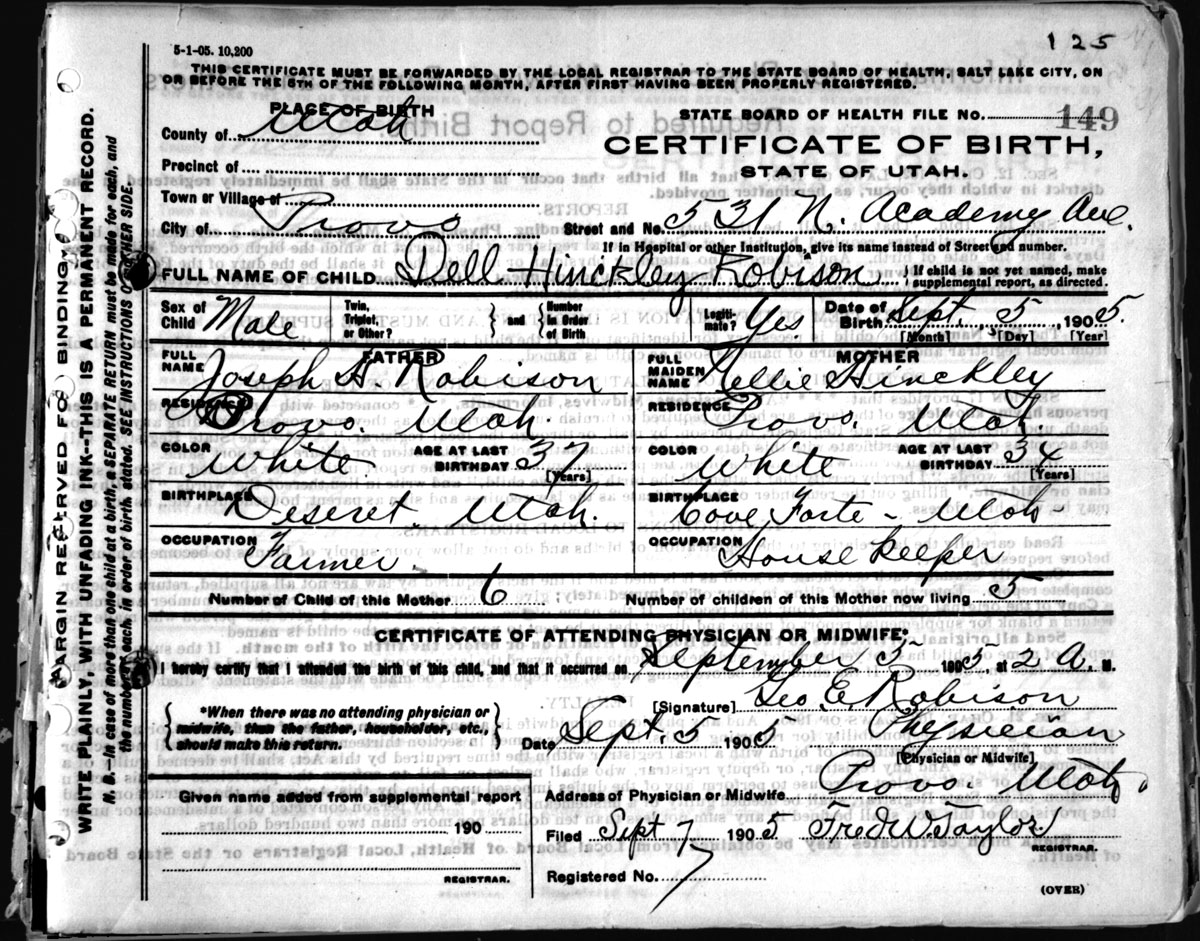 125
5-1-05. 10,200
THIS CERTIFICATE MUST BE FORWARDED BY THE LOCAL REGISTRAR TO THE STATE BOARD OF HEALTH, SALT LAKE CITY, ON
OR BEFORE THE 5TH OF THE FOLLOWING MONTH, AFTER FIRST HAVING BEEN PROPERLY REGISTERED.
PLACE OF BIRTH
STATE BOARD OF HEALTH FILE No. 149
County of Utah
CERTIFICATE OF BIRTH,
Precinct of
STATE OF UTAH.
Town or Village of
City of Provo
Street and No. 531 N. Academy Ave.
If in Hospital or other Institution, give its name instead of Street and number.
FULL NAME OF CHILD Dell Hinckley Robison
} If child is not yet named, make
supplemental report, as directed.
Sex of Child Male
Twin, Triplet, or Other?
} and {
Number in Order of Birth
Legiti-mate? Yes.
Date of Birth Sept 5 1905.
[Month] [Day] [Year]
FATHER
FULL NAME Joseph A. Robison
RESIDENCE Provo. Utah.
COLOR White
AGE AT LAST BIRTHDAY 37
[Years]
BIRTHPLACE Deseret. Utah.
OCCUPATION Farmer.
MOTHER
FULL MAIDEN NAME Nellie Hinckley
RESIDENCE Provo. Utah.
COLOR White
AGE AT LAST BIRTHDAY 34
[Years]
BIRTHPLACE Cove Forte - Utah -
OCCUPATION House Keeper
Number of Child of this Mother 6
Number of children of this Mother now living 5
CERTIFICATE OF ATTENDING PHYSICIAN OR MIDWIFE*
I hereby certify that I attended the birth of this child, and that it occurred on September 5 1905, at 2 A. M.
[Signature] Geo E. Robison
{ *When there was no attending physician or
midwife, then the father, householder, etc.,
should make this return. }
Date Sept. 5 1905 Physician
[Physician or Midwife]
Given name added from supplemental report
Address of Physician or Midwife Provo. Utah.
190
Filed Sept 7 1905 Fred W. Taylor
REGISTRAR.
REGISTRAR.
Registered No. 7
(OVER)
MARGIN RESERVED FOR BINDING.
WRITE PLAINLY, WITH UNFADING INK--THIS IS A PERMANENT RECORD.
N. B.--In case of more than one child at a birth, a SEPARATE RETURN must be made for each, and
the number of each, in order of birth stated. SEE INSTRUCTIONS ON OTHER SIDE.